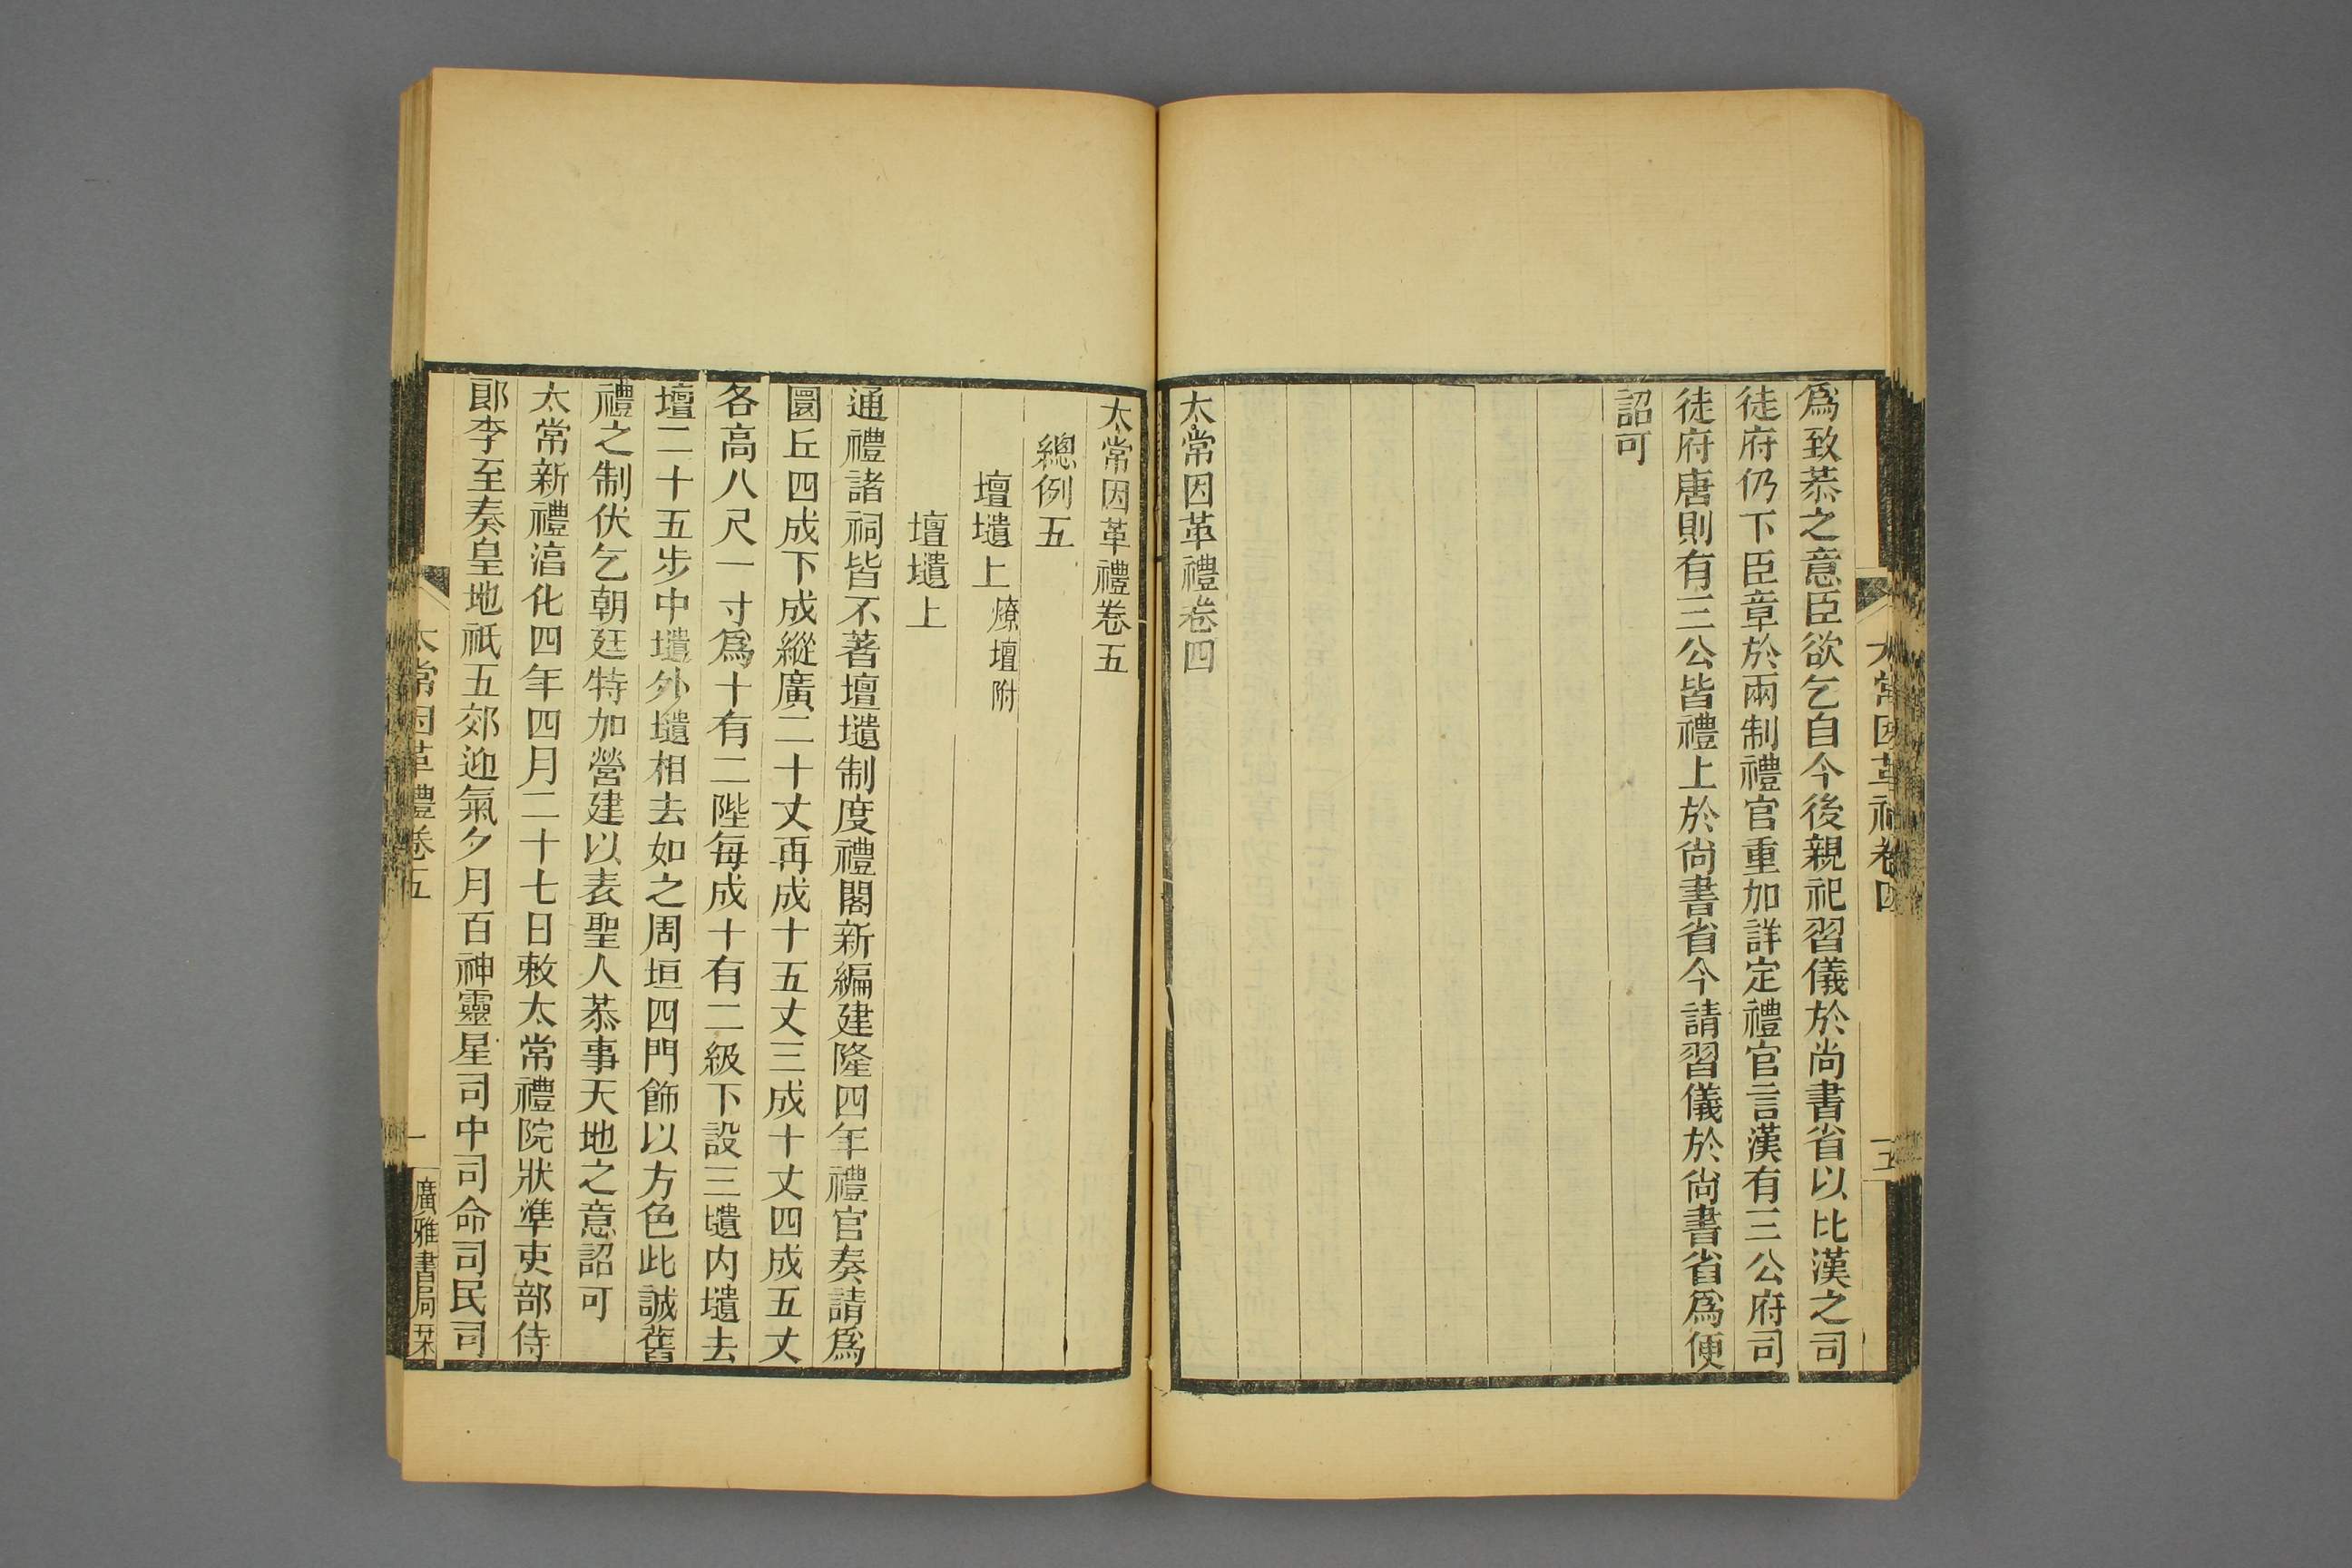 太常因革禮卷四
五
爲致恭之意臣欲乞自今後親祀習儀於尚書省以比漢之司
徒府仍下臣章於兩制禮官重加詳定禮官言漢有三公府司
徒府唐則有三公皆禮上於尚書省今請習儀於尚書省爲便
詔可
太常因革禮卷四
太常因革禮卷五
總例五
壇壝上 燎壇附
壇壝上
通禮諸祠皆不著壇壝制度禮閣新編建隆四年禮官奏請爲
圜丘四成下成縱廣二十丈再成十五丈三成十丈四成五丈
各高八尺一寸爲十有二陛每成十有二級下設三壝内壝去
壇二十五步中壝外壝相去如之周垣四門飾以方色此誠舊
禮之制伏乞朝廷特加營建以表聖人恭事天地之意詔可
太常新禮淳化四年四月二十七日敕太常禮院狀準吏部侍
郎李至奏皇地祇五郊迎氣夕月百神靈星司中司命司民司
太常因革禮卷五
一
廣雅書局栞